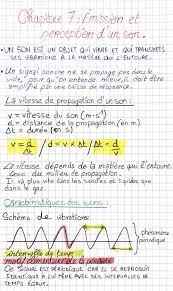 Chapitre 7 : Émission et
perception d'un son.
• UN SON EST UN OBJET QUI VIBRE ET QUI TRANSMETS
SES VIBRATIONS À LA MATIÈRE QUI L'ENTOURE.
• Un signal sonore ne se propage pas dans le
vide, pour qu'on entende mieux, il doit être
amplifié par une caisse de résonance.
La vitesse de propagation d'un son :
v = vitesse du son (m·s⁻¹)
d = distance de la propagation (en m)
Δt = durée (en s)
v = d/Δt / d = v × Δt / Δt = d/v
La vitesse dépends de la matière qui l'entoure.
donc du milieu de propagation.
Il va plus vite dans les solides et liquides que
dans le gaz.
Caractéristiques des sons :
Schéma de vibrations :
phénomène
périodique
intervalle de temps
motif élémentaire de la période
CE SIGNAL EST PÉRIODIQUE CAR IL SE REPRODUIT
IDENTIQUE À LUI MÊME AVEC DES INTERVALLES DE
TEMPS ÉGAUX.